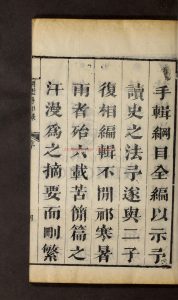 手輯綱目全編以示予
讀史之法予遂與二子
復相編輯不間祁寒暑
雨者殆六載苦簡篇之
汗漫爲之摘要而刪繁